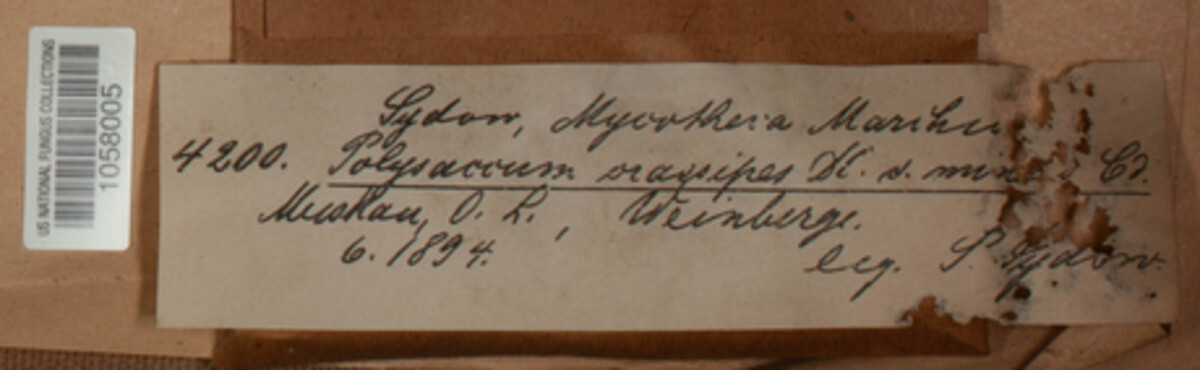 US NATIONAL FUNGUS COLLECTIONS
1058005
Sydow, Mycotheca
4200. Polysaccum crassipes DC. v.
Muskau, O. L., Weinberge.
6. 1894.
leg. P. Sydow.